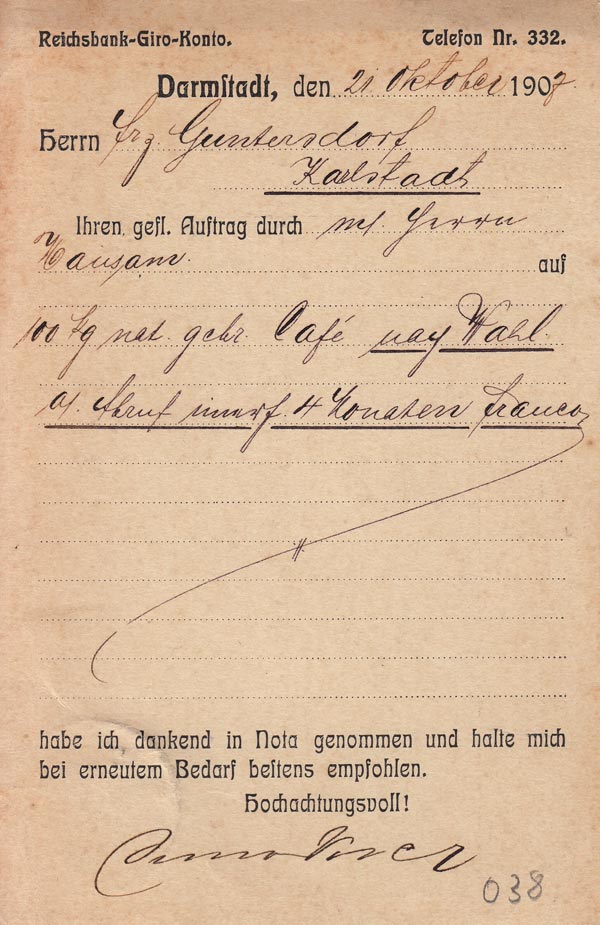 Reichsbank-Giro-Konto. Telefon Nr. 332.
Darmstadt, den 21 Oktober 1907
Herrn Frz. Guntersdorf
Karlstadt
Ihren gefl. Auftrag durch m/. Herrn
Hausam. auf
100 Kg nat. gebr. Café nay Wahl.
a/. Abruf innerh. 4 Monaten franco
habe ich dankend in Nota genommen und halte mich
bei erneutem Bedarf bestens empfohlen.
Hochachtungsvoll!
038